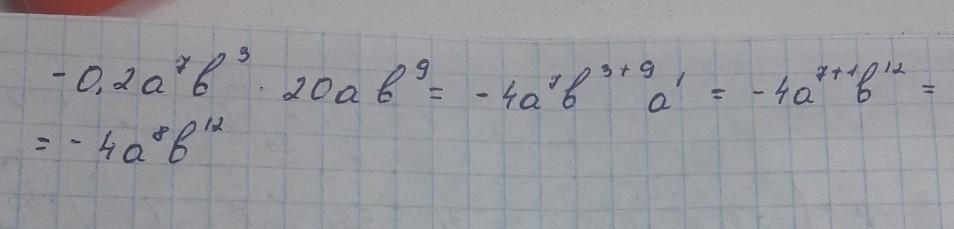 -0,2a⁷b³ · 20ab⁹ = -4a⁷b³⁺⁹ a¹ = -4a⁷⁺¹b¹² =
= -4a⁸b¹²